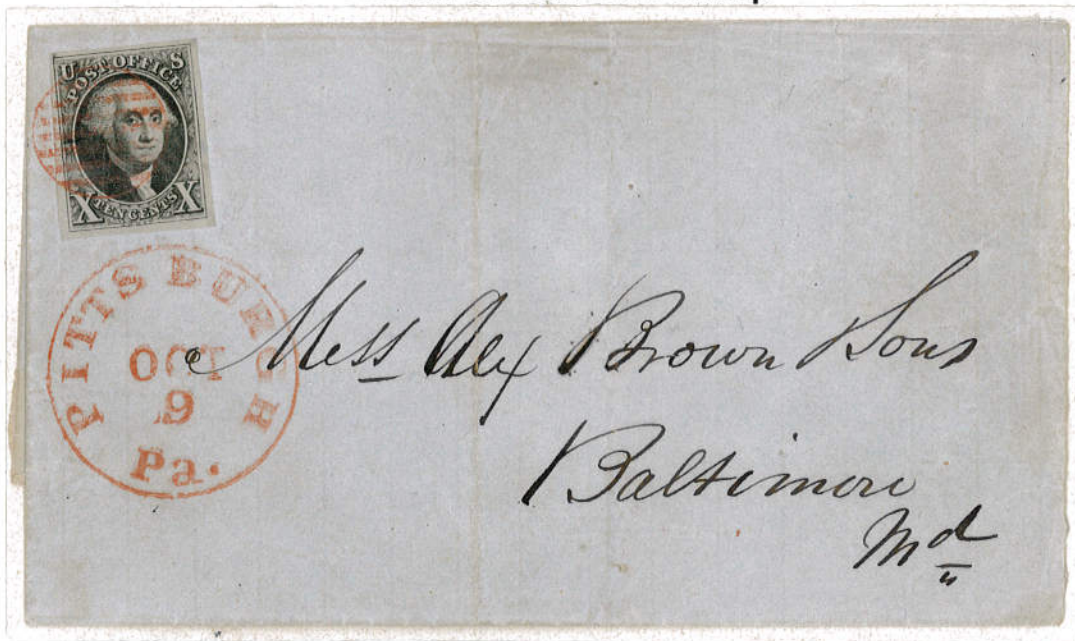 U S
POST OFFICE
X TEN CENTS X
PITTSBURGH
OCT
9
Pa.
Mess Alex Brown Sons
Baltimore
Md